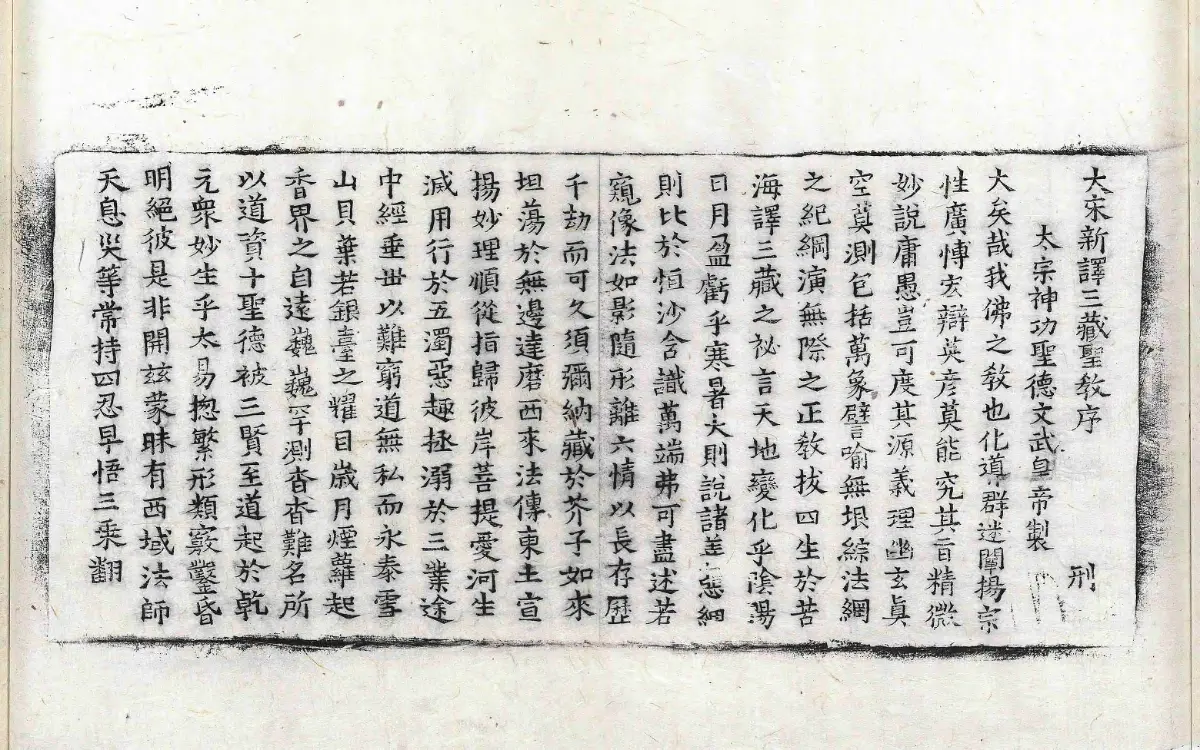 大宋新譯三藏聖敎序 刑
太宗神功聖德文武皇帝製
大矣哉我佛之敎也化導群迷闡揚宗
性廣愽宏辯英彦莫能究其旨精微
妙說庸愚豈可度其源義理幽玄眞
空莫測包括萬象譬喻無垠綜法網
之紀綱演無際之正敎拔四生於苦
海譯三藏之祕言天地變化乎陰陽
日月盈虧乎寒暑大則說諸善惡細
則比於恒沙含識萬端弗可盡述若
窺像法如影隨形離六情以長存歷
千劫而可久須彌納藏於芥子如來
坦蕩於無邊達磨西來法傳東土宣
揚妙理順從指歸彼岸菩提愛河生
滅用行於五濁惡趣拯溺於三業途
中經垂世以難窮道無私而永泰雪
山貝葉若銀臺之耀目歲月煙蘿起
香界之自遠巍巍罕測杳杳難名所
以道資十聖德被三賢至道起於乾
元衆妙生乎太易揔繁形類竅鑿昏
明絕彼是非開玆蒙昧有西域法師
天息災等常持四忍早悟三乘翻